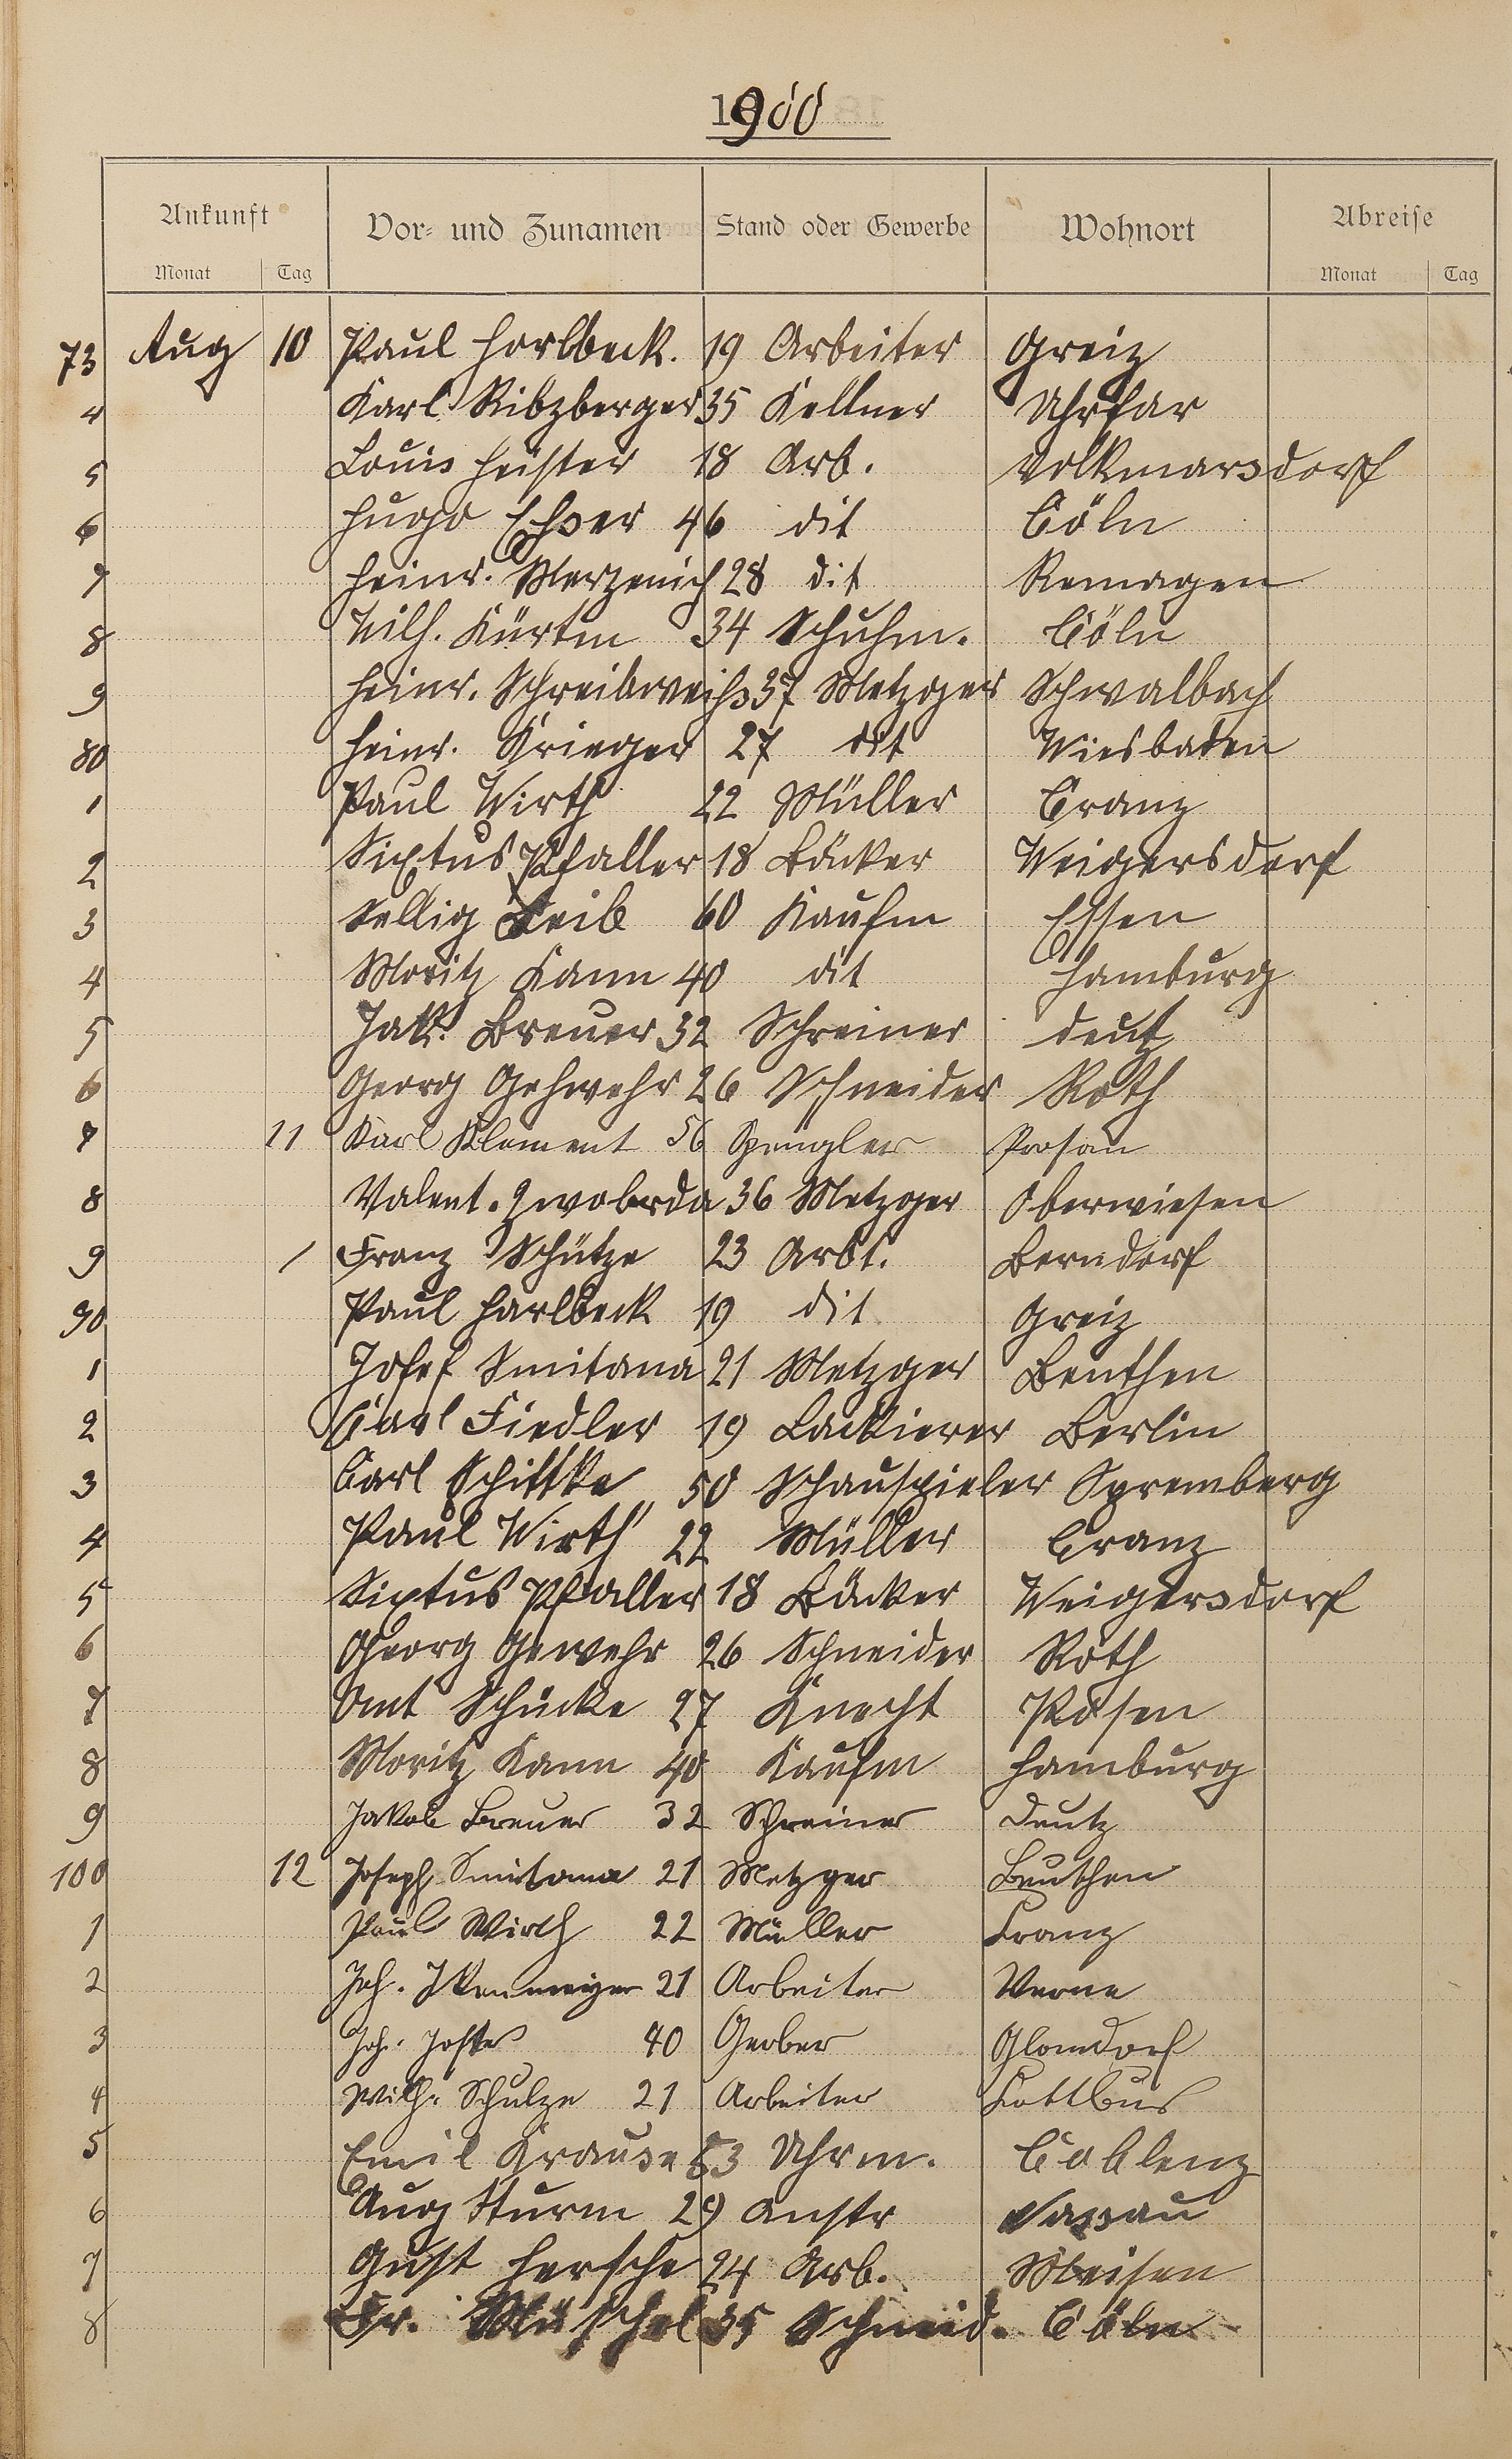 1900
Ankunft Vor- und Zunamen Stand oder Gewerbe Wohnort Abreise
Monat Tag Monat Tag
73 Aug 10 Paul Horlbeck. 19 Arbeiter Greiz
4 Karl Ribzberger 35 Kellner Uhrfar
5 Louis Heister 18 Arb. Volkmarsdorf
6 Hugo Esser 46 dit Cöln
7 Heinr. Merzenich 28 dit Remagen
8 Wilh. Kürten 34 Schuhm. Cöln
9 Heinr. Schreibweiss 37 Metzger Schwalbach
80 Heinr. Krieger 27 dit Wiesbaden
1 Paul Wirth 22 Müller Cranz
2 Sixtus Pfaller 18 Bäcker Weigersdorf
3 Sellig Leib 60 Kaufm Essen
4 Moritz Kann 40 dit Hamburg
5 Jak. Breuer 32 Schreiner Deutz
6 Georg Gehwehr 26 Schneider Roth
7 11 Karl Klement 56 Spengler Prosau
8 Valent. Zwobrda 36 Metzger Oberwiesen
9 / Franz Schütze 23 Arbt. Berndorf
90 Paul Harlbeck 19 dit Greiz
1 Josef Smitana 21 Metzger Beuthen
2 Carl Fiedler 19 Lackierer Berlin
3 Carl Schittke 50 Schauspieler Spremberg
4 Paul Wirth 22 Müller Cranz
5 Sixtus Pfaller 18 Bäcker Weigersdorf
6 Georg Gewehr 26 Schneider Roth
7 Ant Schücke 27 Knecht Posen
8 Moritz Kann 40 Kaufm Hamburg
9 Jakob Breuer 32 Schreiner Deutz
100 12 Joseph Smitana 21 Metzger Beuthen
1 Paul Wirth 22 Müller Cranz
2 Joh. 21 Arbeiter Verne
3 Joh. Joster 40 Gerber Glomdorf
4 Wilh. Schulze 21 Arbeiter Kottbus
5 Emil Krause 53 Uhrm. Coblenz
6 Aug Sturm 29 Anstr Nassau
7 Gust Hersche 24 Arb. Meisen
8 Fr. Müschel 35 Schneid. Cöln